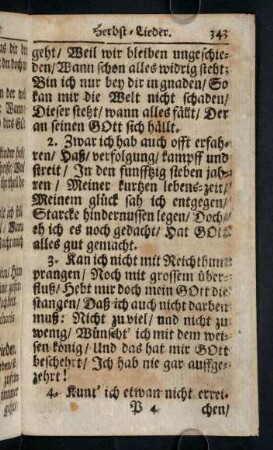 Herbst-Lieder. 343
geht/ Weil wir bleiben ungeschie-
den/ Wann schon alles widrig steht;
Bin ich nur bey dir in gnaden/ So
kan mir die Welt nicht schaden/
Dieser steht/ wann alles fällt/ Der
an seinen GOtt sich hällt.
2. Zwar ich hab auch offt erfah-
ren/ Haß/ verfolgung/ kampff und
streit/ In den funfftzig sieben jah-
ren/ Meiner kurtzen lebens-zeit/
Meinem glück sah ich entgegen/
Starcke hindernussen legen/ Doch
eh ich es noch gedacht/ Hat GOtt
alles gut gemacht.
3. Kan ich nicht mit Reichthum
prangen/ Noch mit grossem über-
fluß/ Hebt nur doch mein GOtt die
stangen/ Daß ich auch nicht darben
muß: Nicht zu viel/ und nicht zu
wenig/ Wünscht' ich mit dem wei-
sen könig/ Und das hat mir GOtt
beschehrt/ Ich hab nie gar auffge-
zehrt!
4. Kunt' ich etwan nicht errei-
P 4 chen/